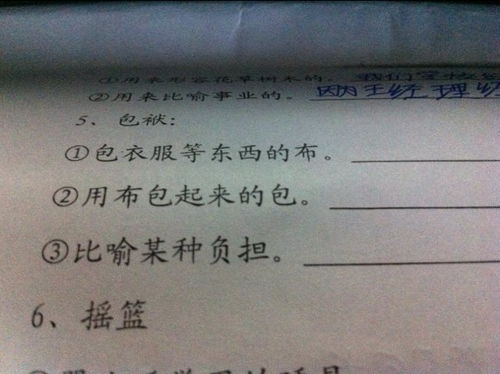 ①用来形容花草树木的。 我们学校
②用来比喻事业的。
5、包袱：
①包衣服等东西的布。
②用布包起来的包。
③比喻某种负担。
6、摇篮